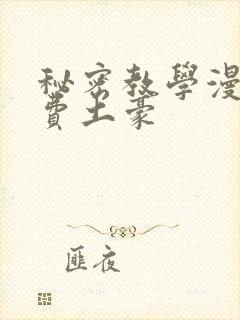 秘密教學漫
費土豪
匪夜